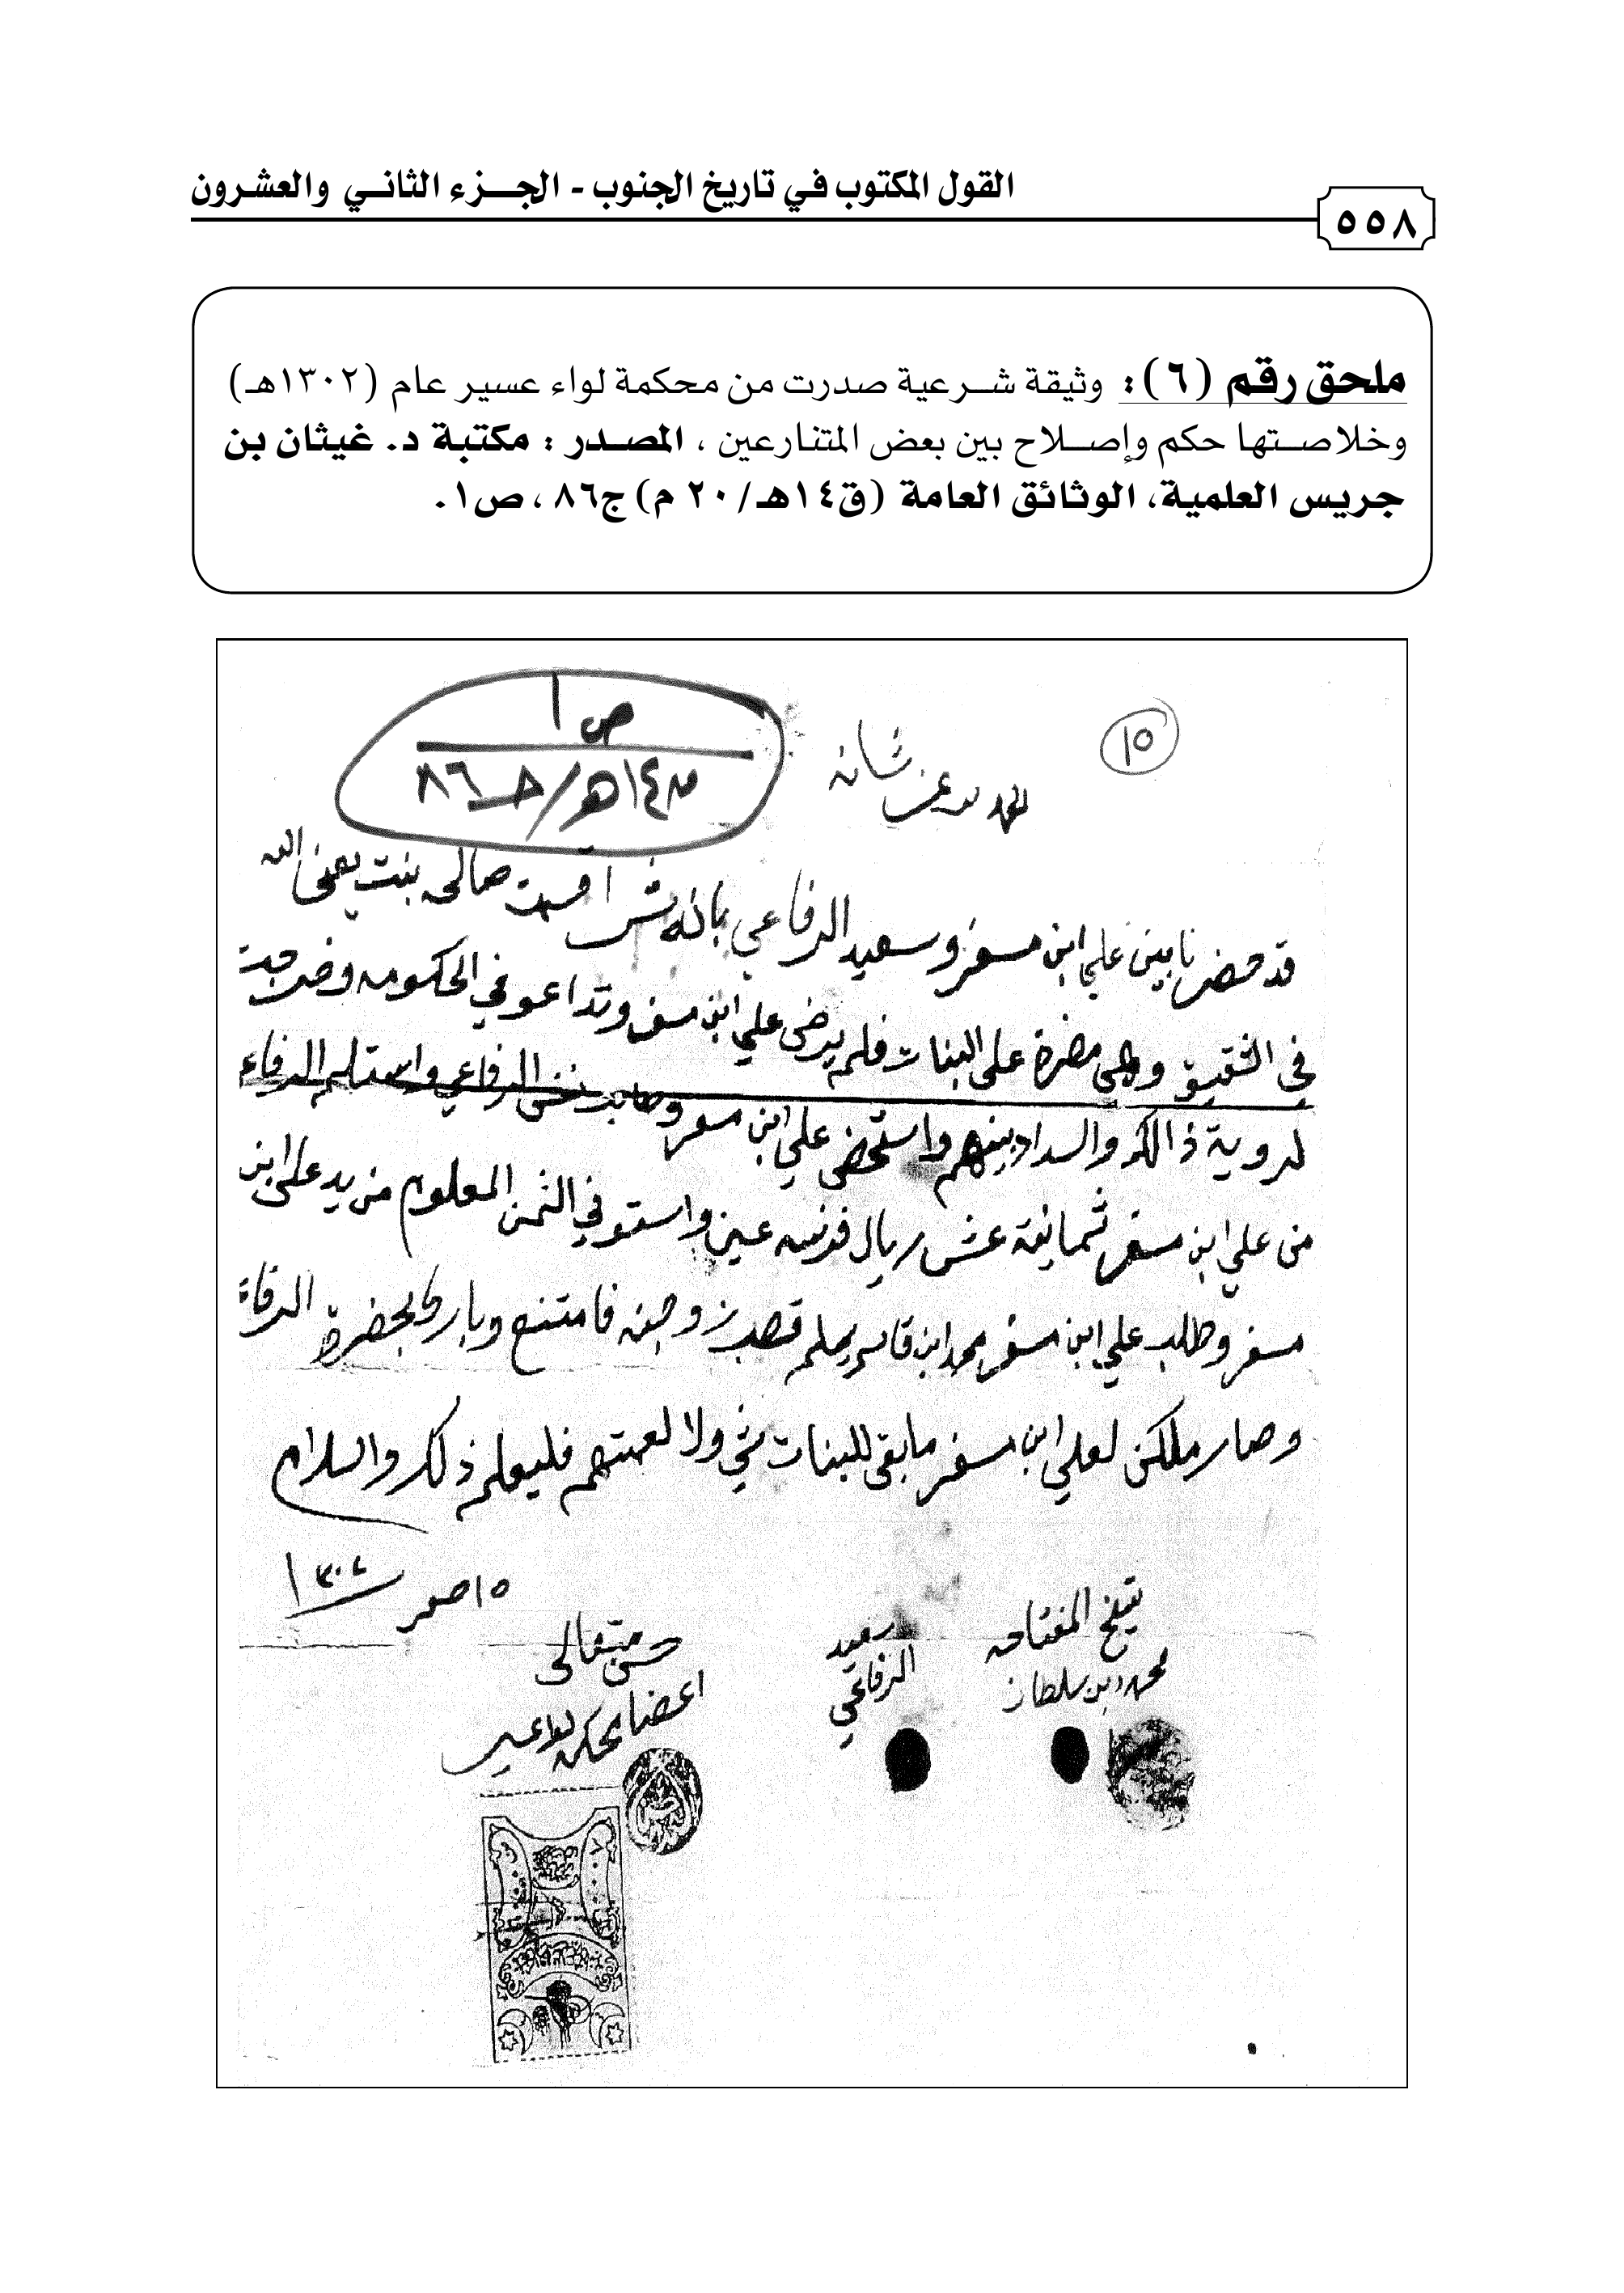 القول المكتوب في تاريخ الجنوب - الجزء الثاني والعشرون
٥٥٨
ملحق رقم (٦): وثيقة شرعية صدرت من محكمة لواء عسير عام (١٣٠٢هـ)
وخلاصتها حكم وإصلاح بين بعض المتنارعين ، المصدر : مكتبة د. غيثان بن
جريس العلمية، الوثائق العامة (ق١٤هـ/٢٠ م) ج٨٦ ، ص١.
ص ١
ق١٤هـ/جـ٨٦
١٥
الحمد لله عز شانه
قد حضرنا بين علي ابن مسفر وسعيد الرفاعي بانه شرا قسمت صالحه بنت يعن الله
في الشقيق وهي مضرة على البنات فلم يرضى علي ابن مسفر وتداعو في الحكومه وخرجت
لروية ذالك والسداد بينهم واستحضى علي ابن مسفر وطابت نفس الرفاعي واستلم الرفاع
من علي ابن مسفر ثمانية عشر ريال فرنسه عين واستوفي الثمن المعلوم من يد علي ابن
مسفر وطلب علي ابن مسفر محمد ابن قاسم يحلم قصب زوجته فامتنع وبارك بحضرة الرفاع
وصار ملكن لعلي ابن مسفر مابقى للبنات شي ولا لعمتهم فليعلم ذلك والسلام
١٥ صفر ١٣٠٢
شيخ المفتاحه
محمد بن سلطان
سعيد
الرفاعي
حسن متعالى
اعضا محكمة لواء عسير